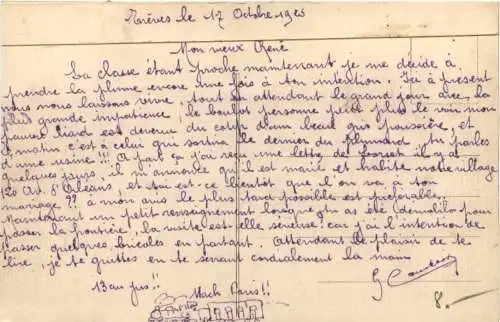 Trèves le 17 Octobre 1925
Mon vieux René
La classe étant proche maintenant je me décide à
prendre la plume encore une fois à ton intention. Ici à présent
nous nous laissons vivre, tout en attendant le grand jour avec la
plus grande impatience; le boulot personne peut plus le voir mon
pauvre est devenu du coup d'un beau gris poussière, et
l'matin c'est à celui qui sortira le dernier du plumard tu parles
d'une usine!!! A part ça j'ai reçu une lettre de il y a
quelques jours. il m'annonce qu'il est marié et habite notre village
20 Art. d'Orléans, et toi est-ce bientôt que l'on va à ton
mariage?? à mon avis le plus tard possible est préférable.
Maintenant un petit renseignement lorsque tu as été démobilo pour
passer la frontière, la visite est-elle sérieuse: car j'ai l'intention de
passer quelques bricoles en partant. Attendant le plaisir de te
lire, je te quittes en te serrant cordialement la main
13 au jus!! Nach Paris!!
8.-